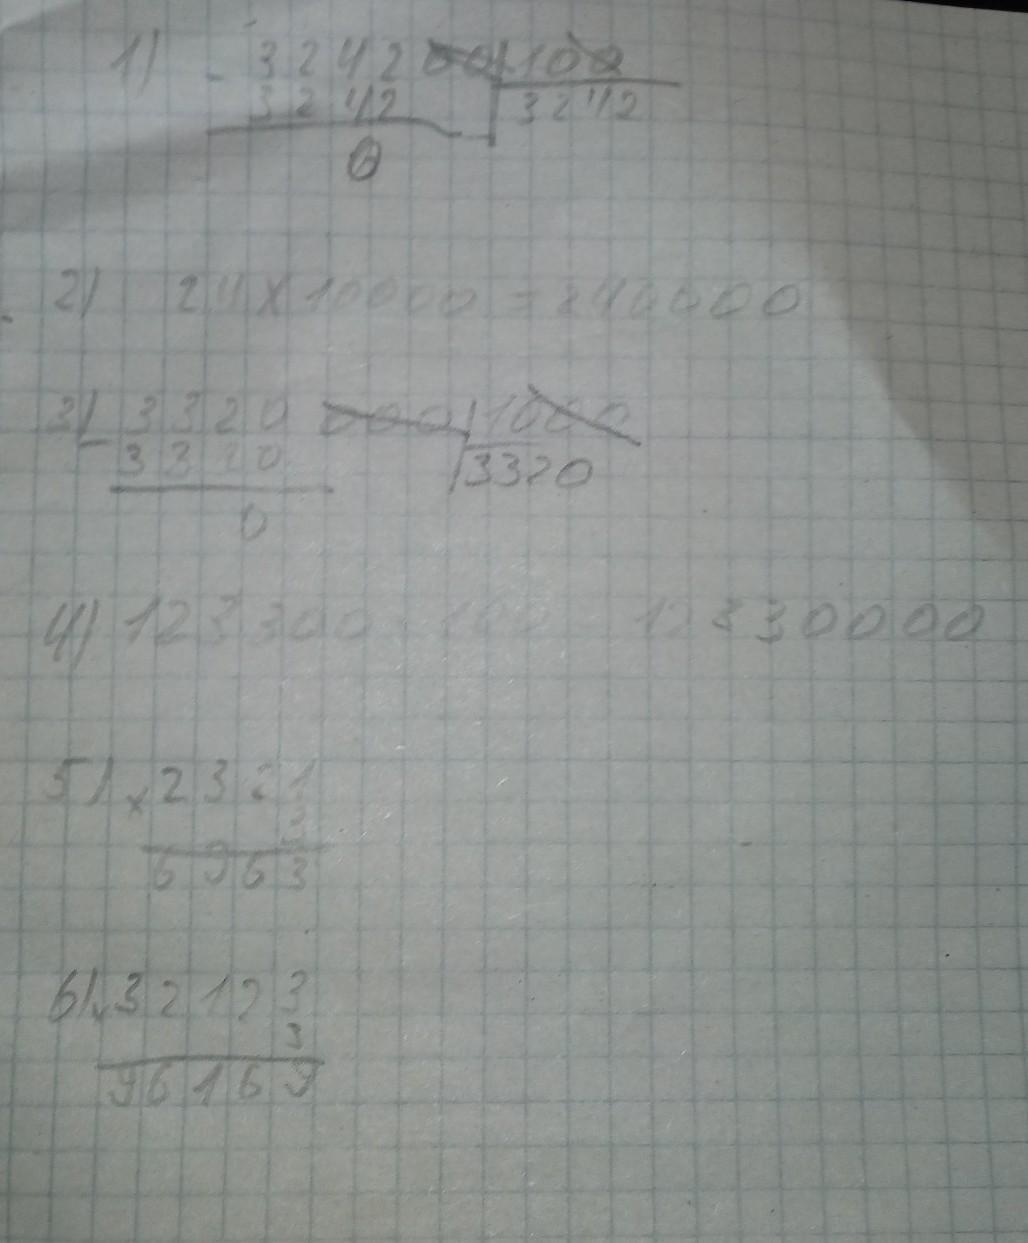 1) - 324200 | 100
3242 | 3242
0
2) 24 x 10000 = 240000
3) - 3320 000 | 1000
3320 | 3320
0
4) 123300 100 12330000
5) x 2321
3
6963
6) x 32123
3
96169